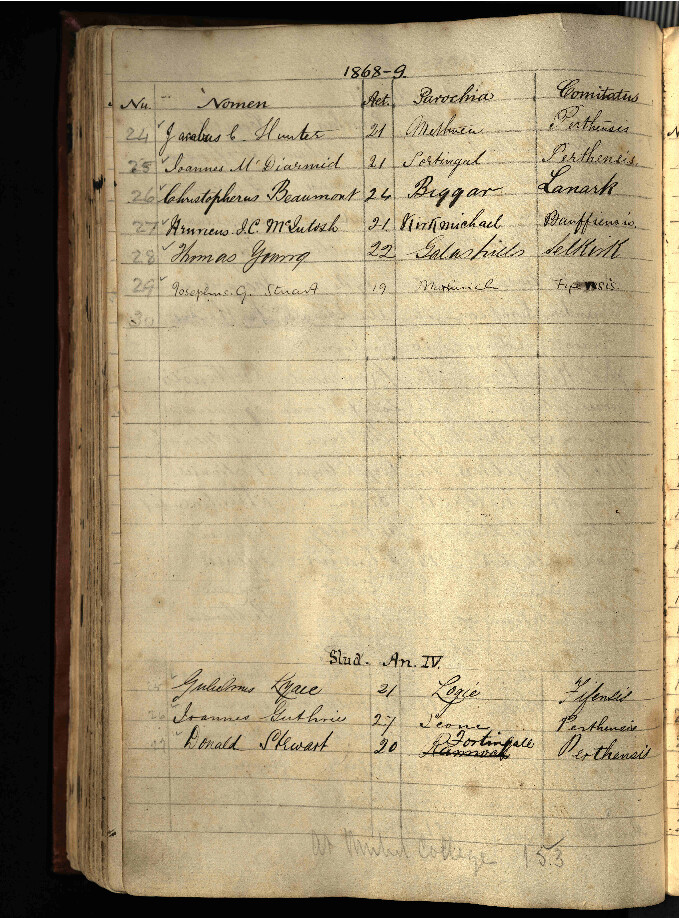 1868-9.
Nu. Nomen Aet. Parochia Comitatus
24 Jacobus C. Hunter 21 Methven Perthensis
25 Joannes McDiarmid 21 Fortingal Perthensis
26 Christopherus Beaumont 24 Biggar Lanark
27 Henricus J.C. McIntosh 21 Kirkmichael Banffiensis.
28 Thomas Young 22 Galashiels Selkirk
29 Josephus G. Stuart 19 Fifensis.
30
Stud. An. IV.
Gulielmus 21 Logie Fifensis
Joannes Guthrie 27 Scone Perthensis
Donald Stewart 20 Fortingale Perthensis
At United College 153